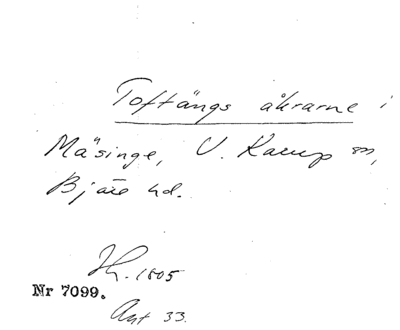 Toftängs åkrarne i
Mäsinge, V. Karup sn,
Bjäre hd.
Jh. 1805
Nr 7099.
Akt 33.